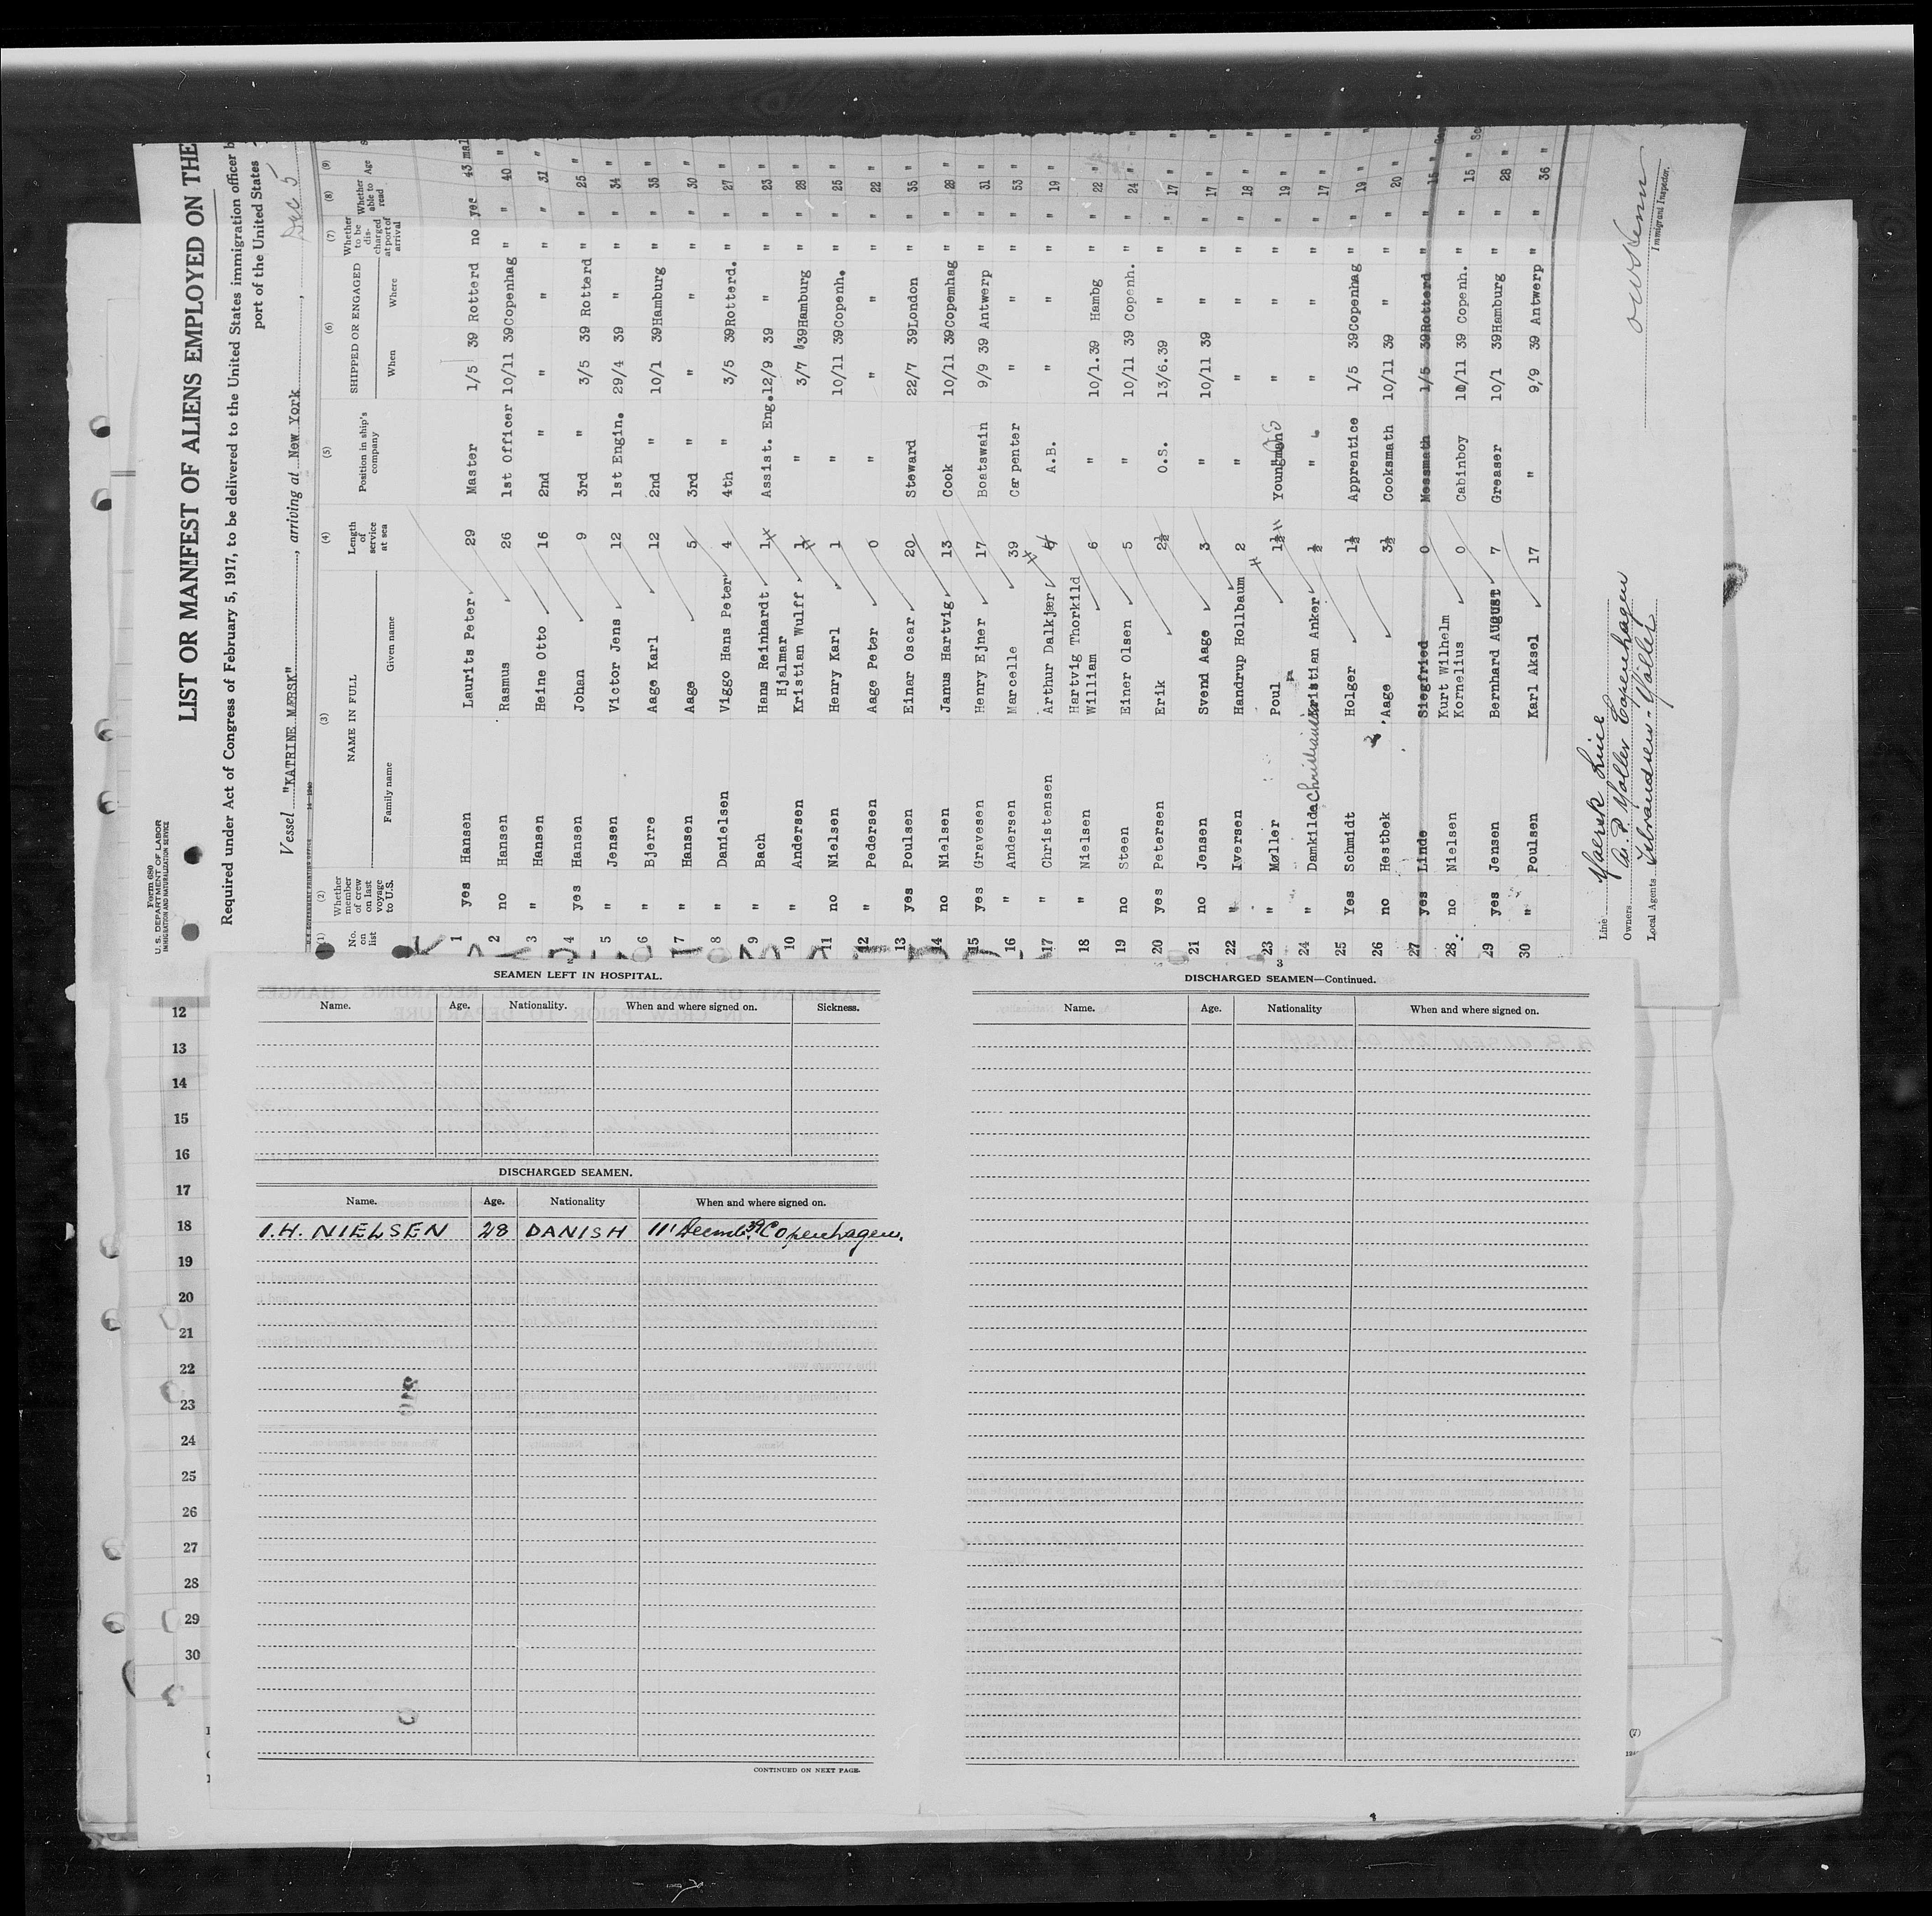 Form 680
U. S. DEPARTMENT OF LABOR
IMMIGRATION AND NATURALIZATION SERVICE
LIST OR MANIFEST OF ALIENS EMPLOYED ON THE
Required under Act of Congress of February 5, 1917, to be delivered to the United States immigration officer b
port of the United States
Vessel "KATRINE MÆRSK", arriving at New York, Dec 5
(1) (2) (3) (4) (5) (6) (7) (8) (9)
No. on list Whether member of crew on last voyage to U.S. NAME IN FULL Length of service at sea Position in ship's company SHIPPED OR ENGAGED Whether to be discharged at port of arrival Whether able to read Age
Family name Given name When Where
1 yes Hansen Laurits Peter 29 Master 1/5 39 Rotterd no yes 43 mal
2 no Hansen Rasmus 26 1st Officer 10/11 39 Copenhag " " 40 "
3 " Hansen Heine Otto 16 2nd " " " " " 31 "
4 yes Hansen Johan 9 3rd " 3/5 39 Rotterd " " 25 "
5 " Jensen Victor Jens 12 1st Engin. 29/4 39 " " " 34 "
6 " Bjerre Aage Karl 12 2nd " 10/1 39 Hamburg " " 35 "
7 " Hansen Aage 5 3rd " " " " 30 "
8 " Danielsen Viggo Hans Peter 4 4th " 3/5 39 Rotterd. " " 27 "
9 " Bach Hans Reinhardt Hjalmar 1 Assist. Eng. 12/9 39 " " " 23 "
10 " Andersen Kristian Wulff 1 " 3/7 39 Hamburg " " 28 "
11 no Nielsen Henry Karl 1 " 10/11 39 Copenh. " " 25 "
12 " Pedersen Aage Peter 0 " " " " " 22 "
13 yes Poulsen Einar Oscar 20 Steward 22/7 39 London " " 35 "
14 no Nielsen Janus Hartvig 13 Cook 10/11 39 Copemhag " " 29 "
15 yes Gravesen Henry Ejner 17 Boatswain 9/9 39 Antwerp " " 31 "
16 " Andersen Marcelle 39 Carpenter " " " " 53 "
17 " Christensen Arthur Dalkjær A.B. " " " " 19 "
18 " Nielsen Hartvig Thorkild William 6 " 10/1.39 Hambg " " 22 "
19 no Steen Einer Olsen 5 " 10/11 39 Copenh. " " 24 "
20 yes Petersen Erik 2½ O.S. 13/6.39 " " " 17 "
21 no Jensen Svend Aage 3 " 10/11 39 " " " 17 "
22 " Iversen Handrup Hollbaum 2 " " " " " 18 "
23 " Møller Poul 1½ Youngman OS " " " " 19 "
24 " Damkilde Christian Kristian Anker ½ " " " " " 17 "
25 Yes Schmidt Holger 1½ Apprentice 1/5 39 Copenhag " " 19 "
26 no Hestbek Aage 3½ Cooksmath 10/11 39 " " " 20 "
27 yes Linde Siegfried 0 Messmath 1/5 39 Rotterd " " 15 "
28 no Nielsen Kurt Wilhelm Kornelius 0 Cabinboy 10/11 39 Copenh. " " 15 "
29 yes Jensen Bernhard AUGUST 7 Greaser 10/1 39 Hamburg " " 28 "
30 " Poulsen Karl Aksel 17 " 9/9 39 Antwerp " " 36 "
Line Maersk Line
Owners A. P. Moller Copenhagen
Local Agents Isbrandtsen-Moller
Immigrant Inspector.
SEAMEN LEFT IN HOSPITAL.
Name. Age. Nationality. When and where signed on. Sickness.
DISCHARGED SEAMEN.
Name. Age. Nationality When and where signed on.
I.H. NIELSEN 28 DANISH 11' Decmb. 39 Copenhagen.
CONTINUED ON NEXT PAGE.
3
DISCHARGED SEAMEN—Continued.
Name. Age. Nationality When and where signed on.
12
13
14
15
16
17
18
19
20
21
22
23
24
25
26
27
28
29
30